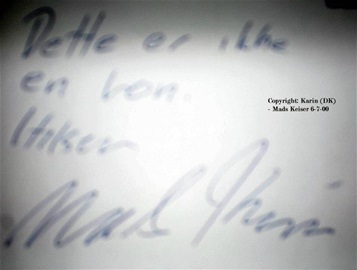 Dette er ikke
en
Hilsen
Mads
Copyright: Karin (DK)
- Mads Keiser 6-7-00